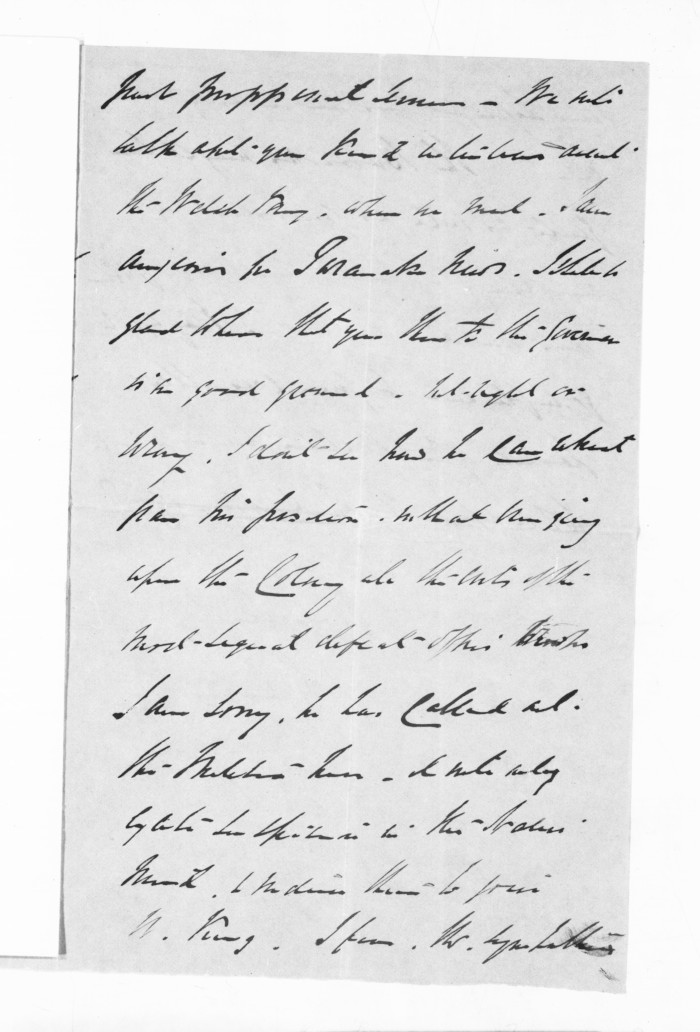 We will
talk abt your kind about
the when we meet. I am
anxious for Taranaki News. I shd be
glad to hear that you think the Governor
is on good ground - but right or
wrong, I don't see how he can
from his position. without bringing
upon the Colony all the evils of the
most signal defeat of his troops
I am sorry, he has called out
the Militia here - it will only
excite suspicion in the Native
Mind, & induce them to join
W. King. I fear, the sympathies